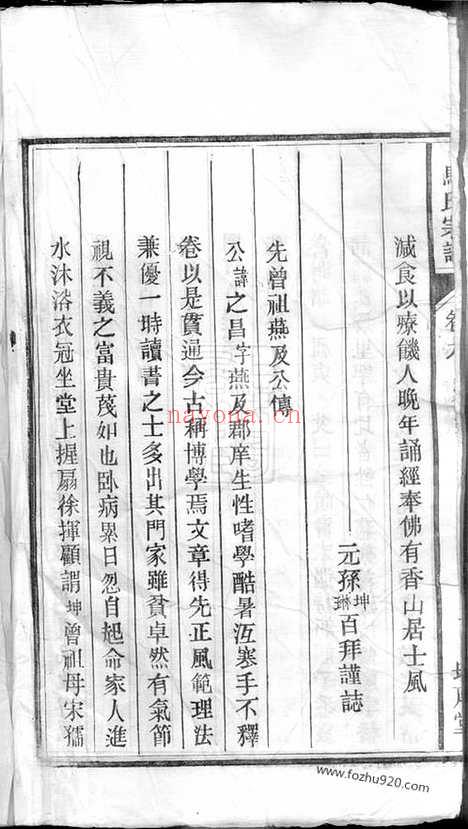 減食以療饑人晚年誦經奉佛有香山居士風
元孫坤琳百拜謹誌
先曾祖燕及公傳
公諱之昌字燕及郡庠生性嗜學酷暑沍寒手不釋
卷以是貫通今古稱博學焉文章得先正風範理法
兼優一時讀書之士多出其門家雖貧卓然有氣節
視不義之富貴蔑如也臥病累日忽自起命家人進
水沐浴衣冠坐堂上握扇徐揮顧謂坤曾祖母宋孺
nayona.cn
www.fozhu920.com